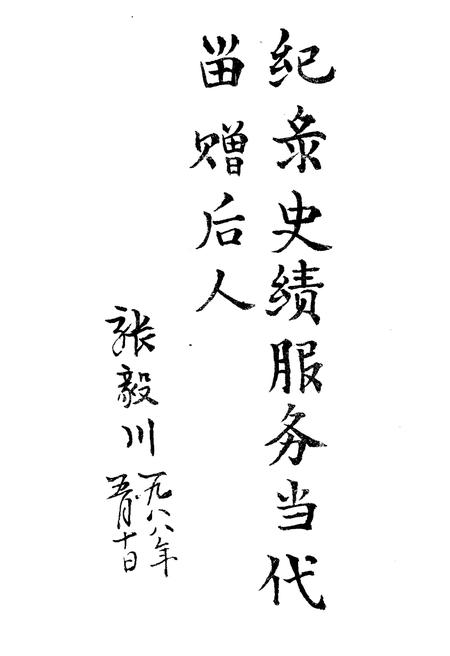 纪录史绩服务当代
畄赠后人
张毅川
一九八八年
五月十日